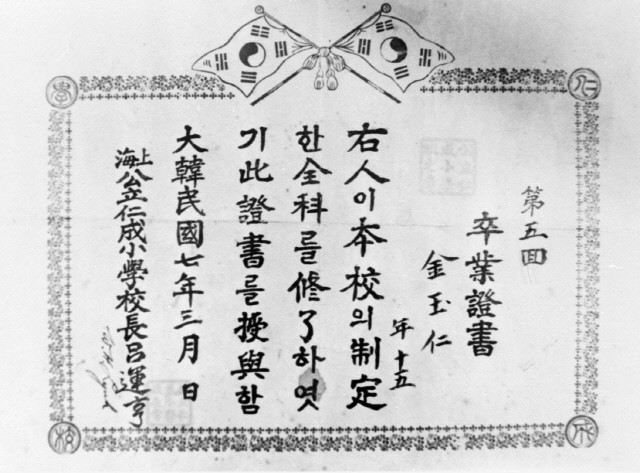 第五回
卒業證書
金玉仁
年十五
右人이本校의制定
한全科를修了하엿
기此證書를授與함
大韓民國七年三月 日
上海公立仁成小學校長呂運亨
仁
成
學
校